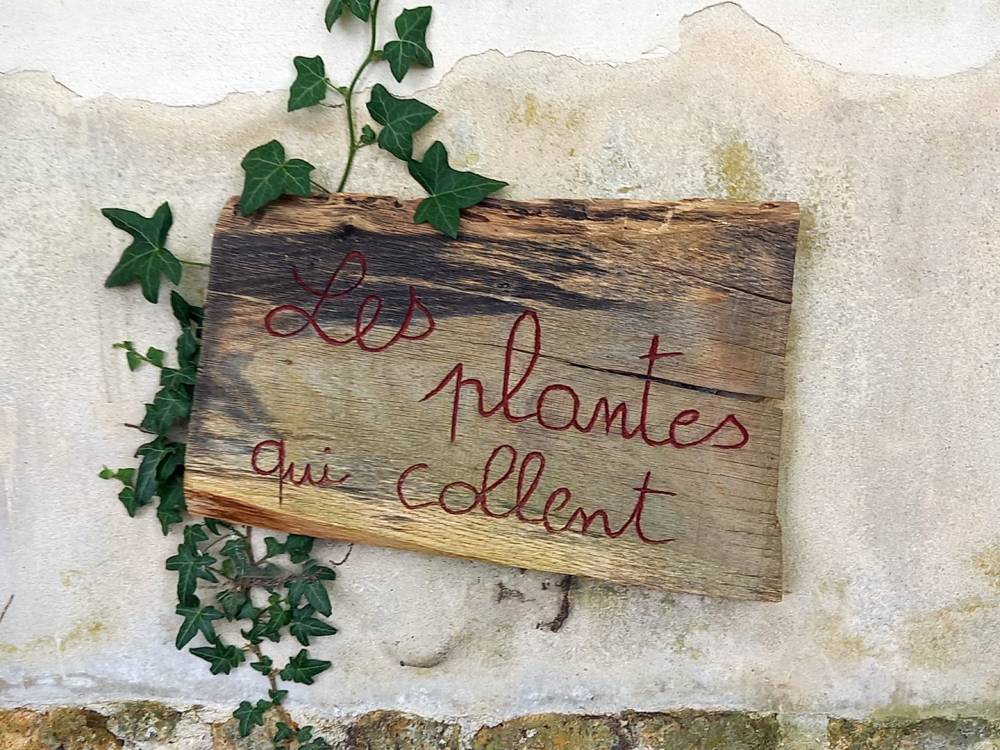 Les
plantes
qui collent